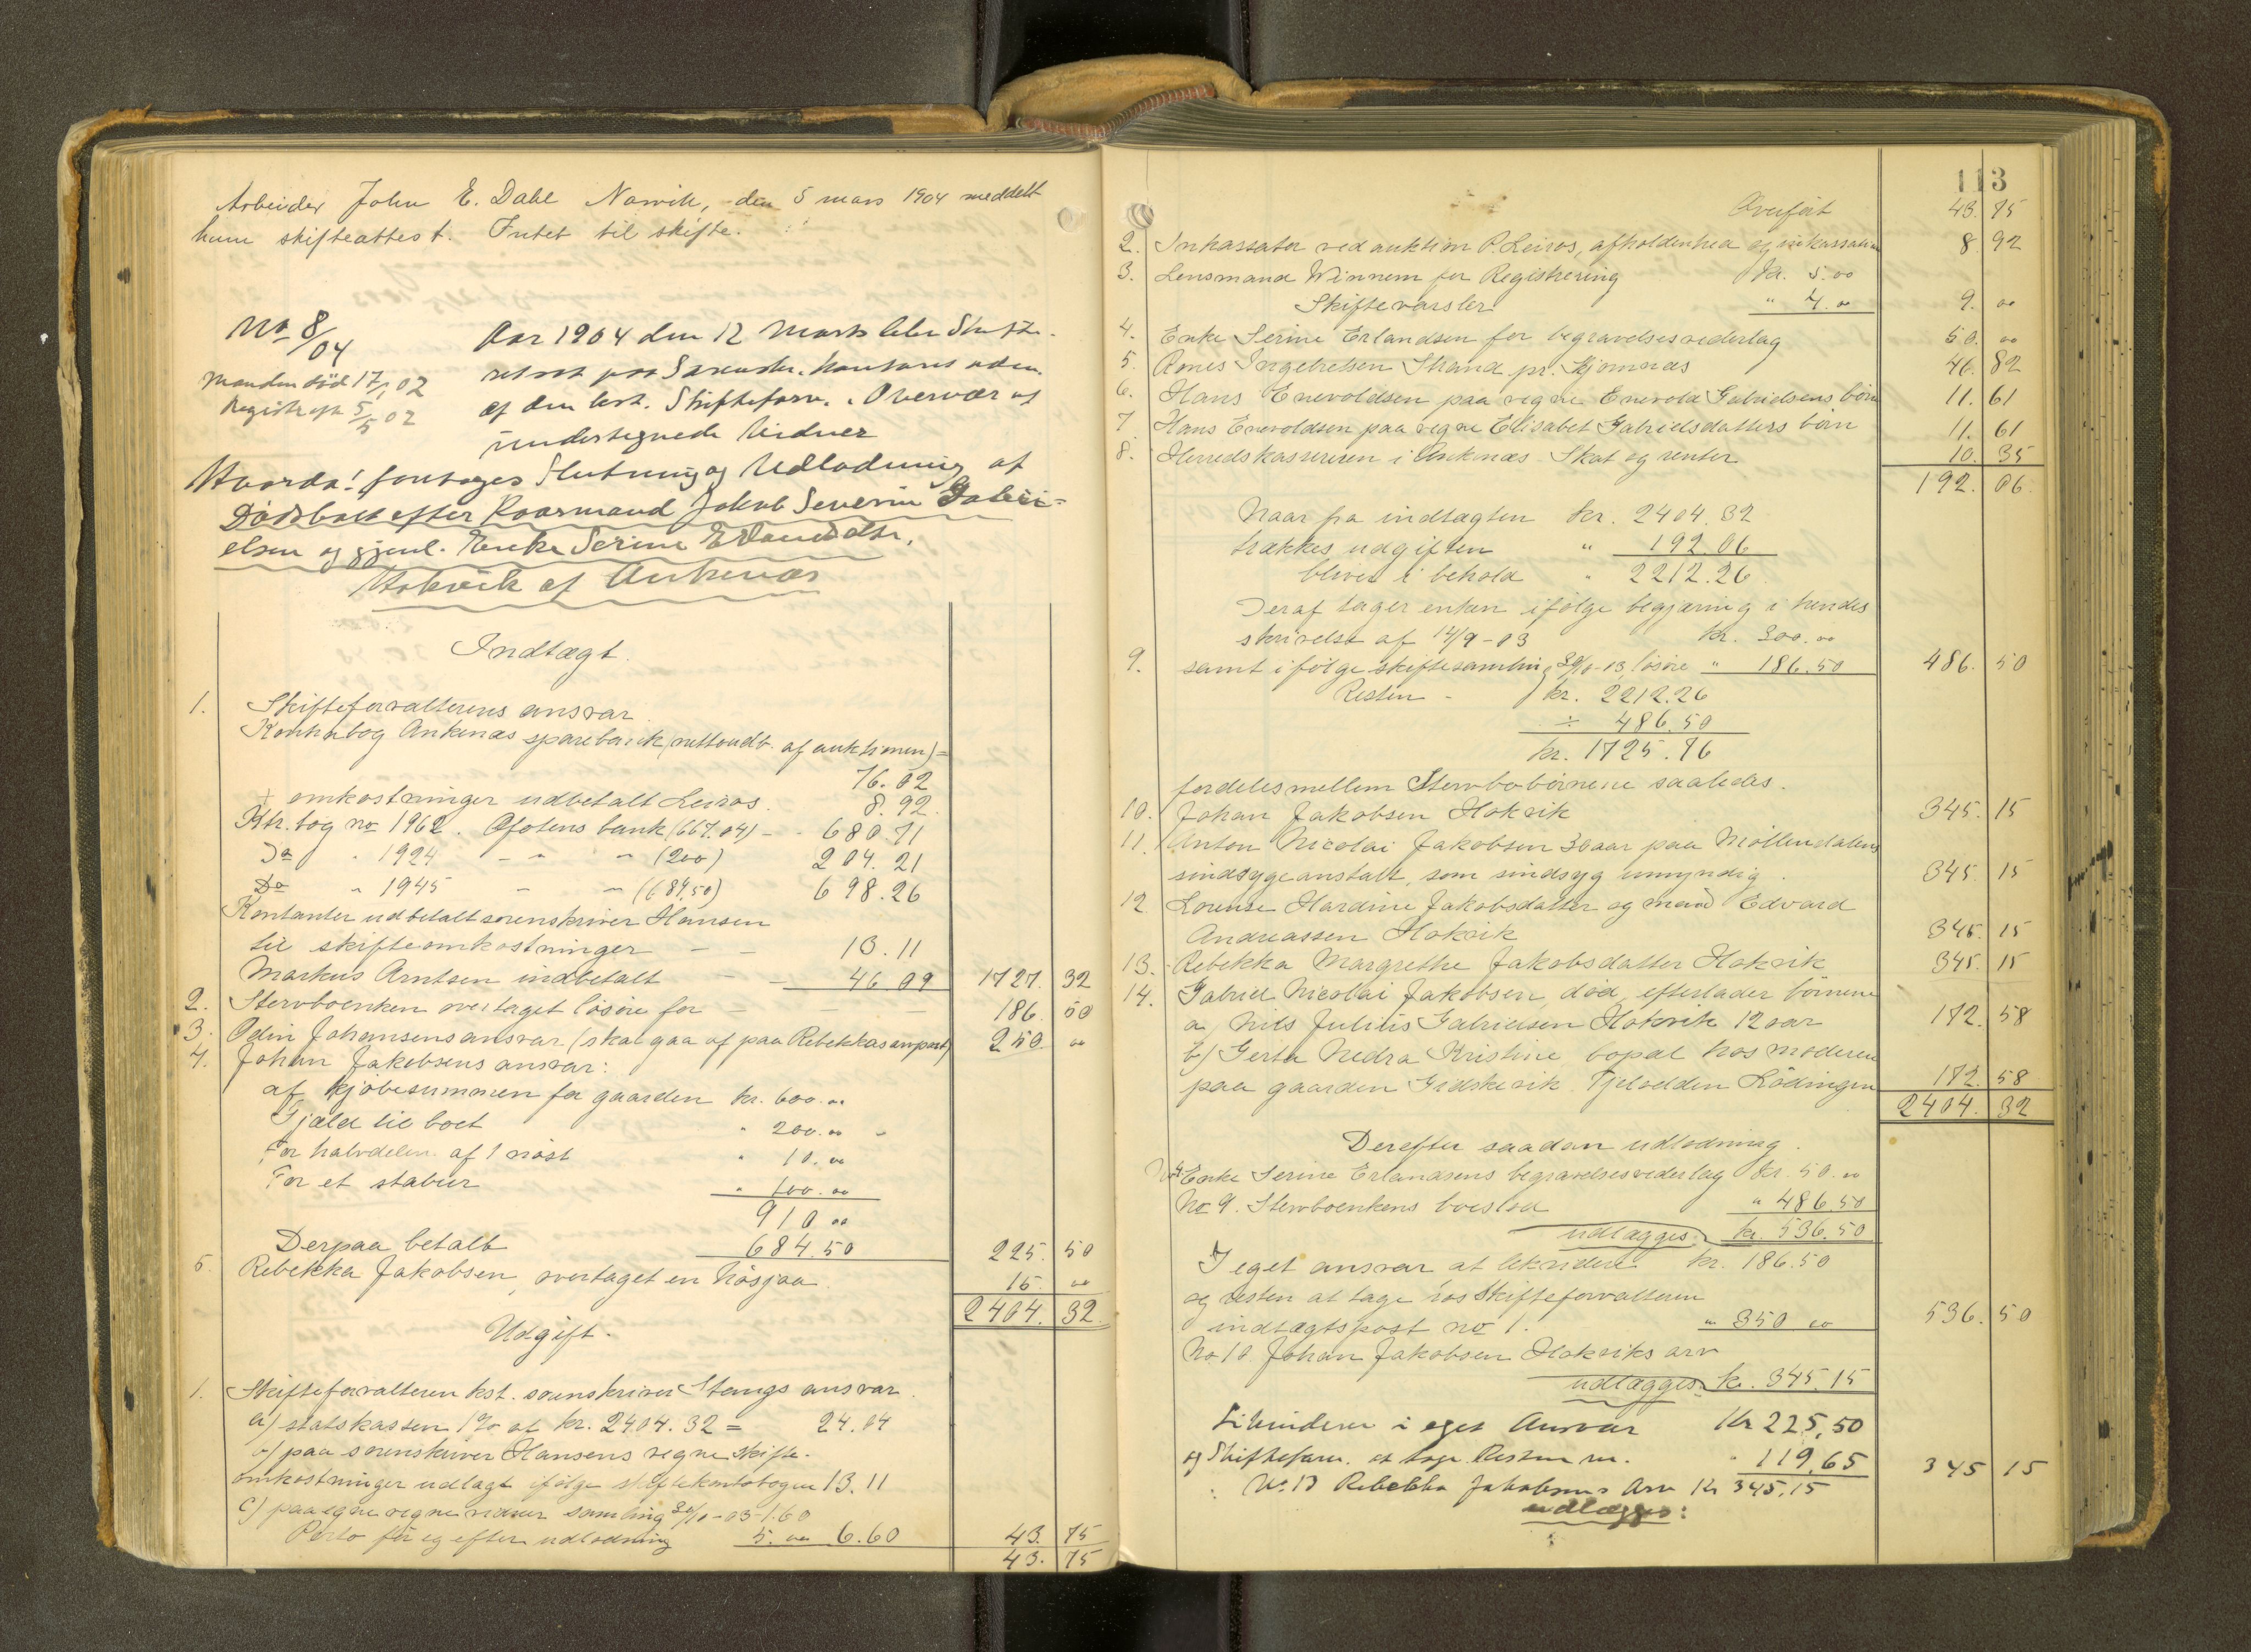 Arbeider John E. Dahl Narvik, den 5 mars 1904 meddelt
ham skifteattest. Intet til skifte.
No 8/04
Manden död 17/1 02
Registr. 5/5 02
Aar 1904 den 12 Marts blev Skifte-
ret sat paa Sorenskr. kontoret
af den kst. Skifteforv. i Overvær af
undertegnede Vidner
Hvorda! foretoges Slutning og Udlodning af
Dödsboet efter Kaarmand Jakob Severin Gabri-
elsen og gjenl. Enke Serine Erlandsdtr.
Hokvik af Ankenæs
Indtægt.
1. Skifteforvalterens ansvar.
Kontrabog Ankenæs sparebank (nettoudb. af auktionen) =
76.02
+ omkostninger udbetalt Leiros. 8.92.
Ktr. bog no 1962. Ofotens bank (667.04) - - 680.71
Do " 1924 - " " (200) 204.21
Do " 1945 - " (684.50) 698.26
Kontanter udbetalt sorenskriver Hansen
til skifteomkostninger - - 13.11
Markus Arntsen indbetalt - - 46.09 1727. 32
2. Stervboenken overtaget lösöre for - - - 186. 50
3. Odin Johansens ansvar (skal gaa af paa Rebekkas arvpart) 250 00
4. Johan Jakobsens ansvar:
af kjöbesummen for gaarden kr. 600.00
Gjæld til boet " 200.00 -
For halvdelen af 1 nöst " 10.00
For et stabur " 100.00
910 00
Derpaa betalt 684.50 225. 50
5. Rebekka Jakobsen, overtaget en hösjaa 15. 00
2404. 32.
Udgift.
1. Skifteforvalteren kst. sorenskriver Stangs ansvar.
a) statskassen 1% af kr. 2404.32 = 24.04
b) paa sorenskriver Hansens regne skifte-
omkostninger udlagt ifölge skiftekontobogen 13.11
c) paa egne regne vidner samling 30/10-03-1.60
Porto för og efter udlodning 5.00 6.60 43. 75
43. 75
113
Overfört 43. 75
2. Inkassator ved auktion P. Leiros, afholdenhed og inkassation 8. 92
3. Lensmand Winnem for Registrering Kr. 5.00
Skiftevarsler " 4.00 9. 00
4. Enke Serine Erlandsen for begravelsesvederlag 50. 00
5. Rones Ingebretsen Strand pr. Kjomnæs 46. 82
6. Hans Enevoldsen paa regne Enevold Gabrielsens börn 11. 61
7 Hans Enevoldsen paa regne Elisabet Gabrielsdatters börn 11. 61
8. Herredskassereren i Ankenæs Skat og renter 10. 35
192. 06.
Naar fra indtægten kr. 2404.32
trækkes udgiften " 192.06
bliver i behold " 2212.26
Deraf tager enken ifölge begjæring i hendes
skrivelse af 14/9-03 kr. 300.00
9. samt ifölge skiftesamling 30/10-03 lösöre " 186.50 486. 50
Resten - kr. 2212.26
÷ 486.50
kr. 1725.76
fordeles mellem Stervbobörnene saaledes.
10. Johan Jakobsen Hokvik 345. 15
11. Anton Nicolai Jakobsen 30 aar paa Möllendalens
sindsygeanstalt, som sindsyg umyndig. 345. 15
12 Lorense Hardine Jakobsdatter og mand Edvard
Andreassen Hokvik 345. 15
13. Rebekka Margrethe Jakobsdatter Hokvik 345. 15
14. Gabriel Nicolai Jakobsen död, efterlader börnene
a) Nils Julius Gabrielsen Hokvik 12 aar 172. 58
b) Gerta Nedra Kristine bopæl hos moderen
paa gaarden Gridskevik Tjelodden Lödingen 172. 58
2404. 32
Derefter saadan udlodning.
No 4 Enke Serine Erlandsens begravelsesvederlag kr. 50.00
No 9. Stervboenkens boeslod " 486.50
udlægges: kr. 536.50
I eget ansvar at likvidere kr. 186.50
og resten at tage hos Skifteforvalteren
indtægtspost no 1. " 350 00 536. 50
No 10. Johan Jakobsen Hokviks arv
udlægges kr. 345.15
Likviderer i eget Ansvar Kr 225,50
og Skifteforv. at tage Resten m. " 119,65 345 15
No. 13 Rebekka Jakobsens Arv Kr 345,15
udlægges: